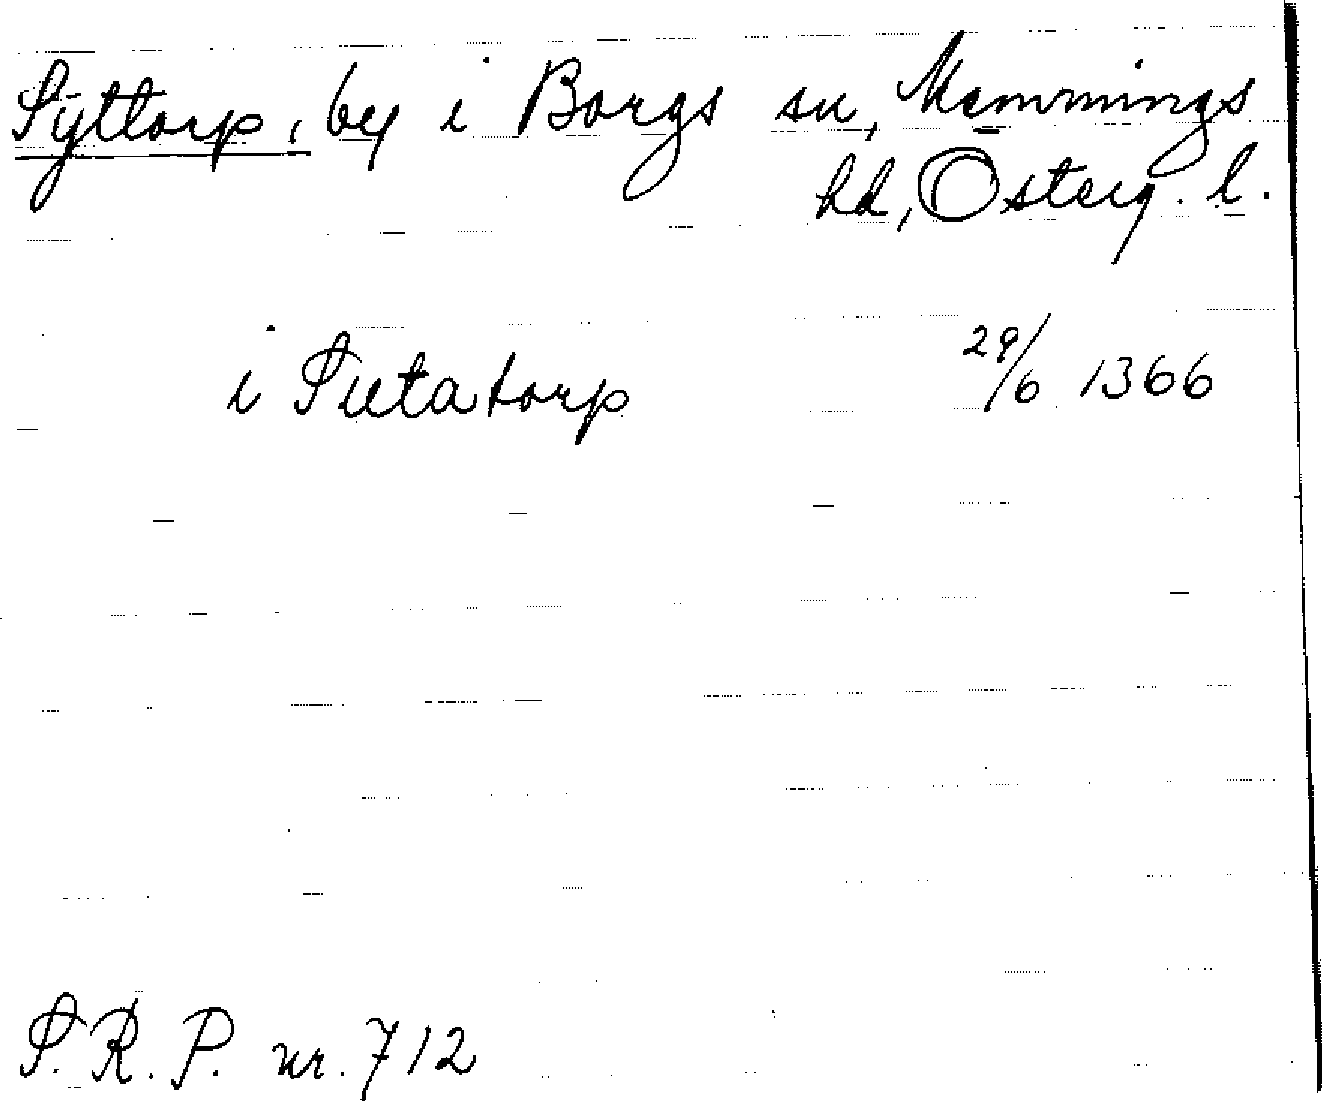 Syttorp, by i Borgs sn, Memmings
hd, Österg. l.
i Sutatorp 29/6 1366
S.R.P. nr. 712